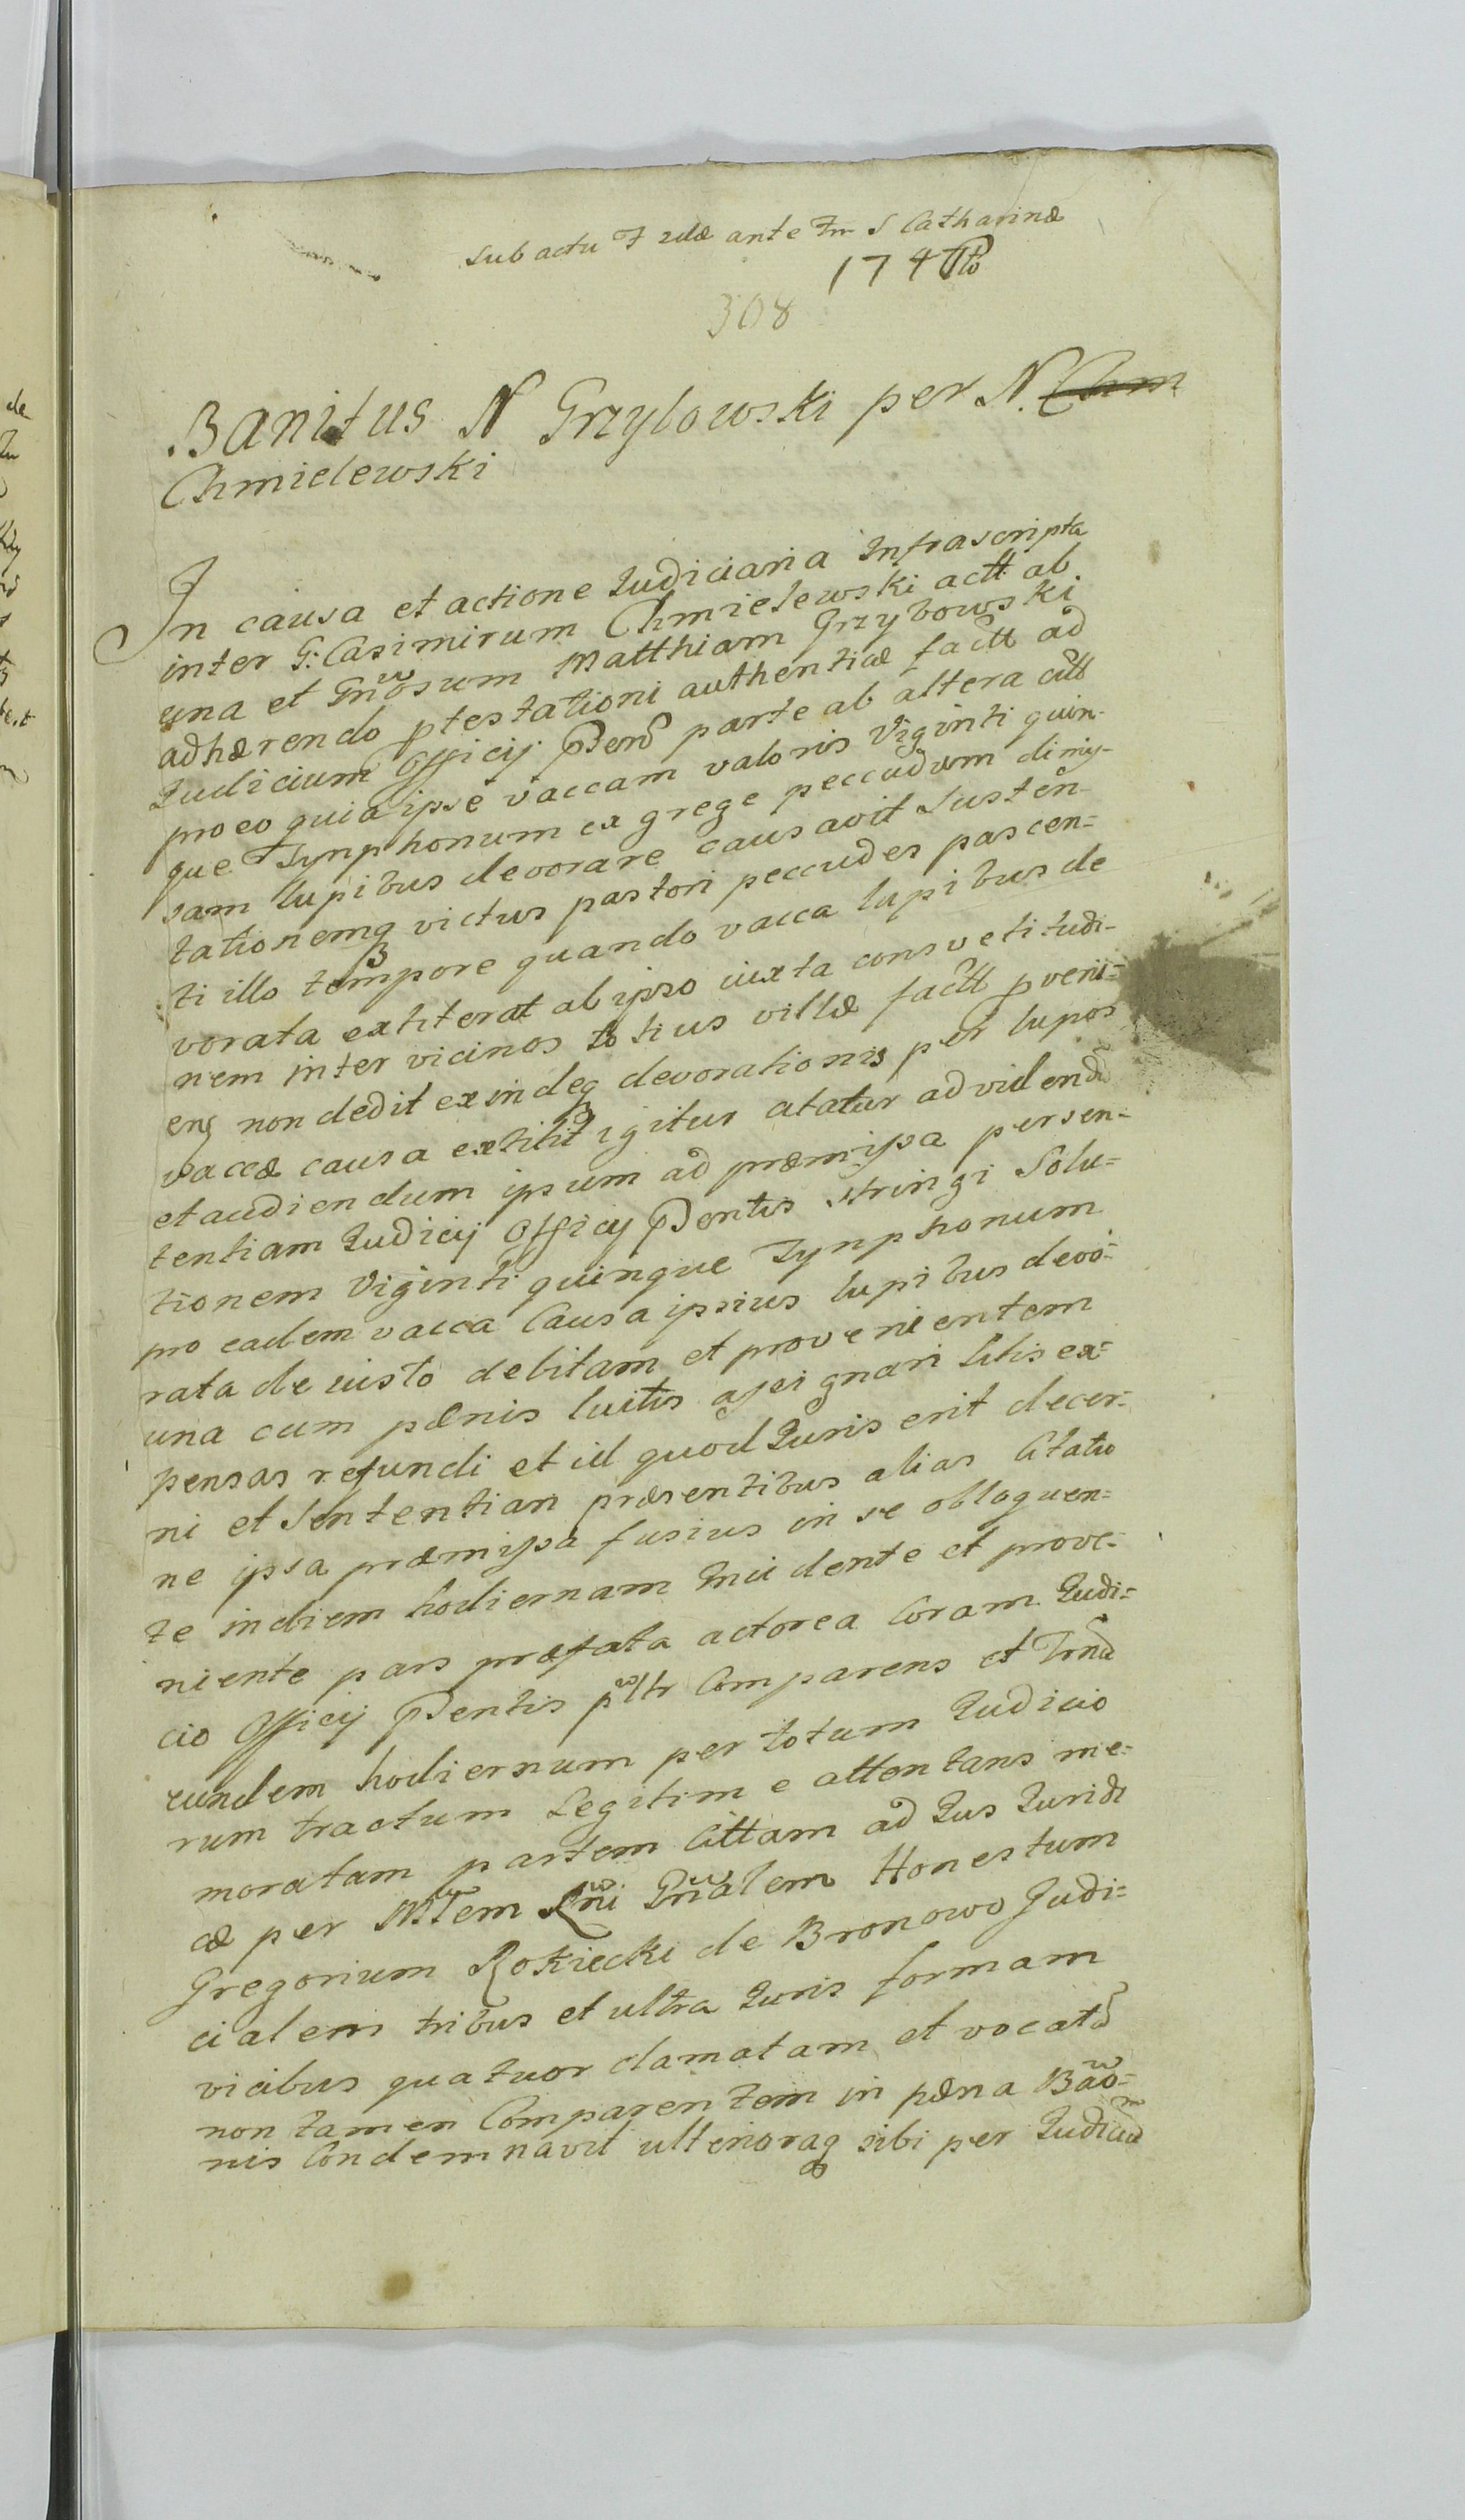 Sub actu F 2dæ ante Fm S Catharinæ
174
308
Banitus N Grzybowski per N. Chm
Chmielewski
In causa et actione Iudiciaria Infrascripta
inter G: Casimirum Chmielewski actt ab
una et Gnrosum Matthiam Grzybowski
adhærendo ptestationi authenticæ factt ad
Iudicium Officij parte ab altera citt
pro eo quia ipse vaccam valoris Viginti quin-
que Tynphonum ex grege peccudum dimys-
sam lupibus devorare causavit Susten-
tationemq victus pastori peccudes pascen=
ti illo tempore quando vacca lupibus de
vorata extiterat ab ipso iuxta consvetitudi-
nem inter vicinos totius villæ factt pveni=
ens non dedit exindeq devorationis per lupos
vaccæ causa extitit igitur citatur ad videnđ
et audiendum ipsum ad præmissa persen=
tentiam Iudicij Officij Pdentis stringi Solu=
tionem Viginti quinque Tynphonum
pro eadem vacca Causa ipsius lupibus devo=
rata de iusto debitam et provenientem
una cum pænis luitis assignari litis ex=
pensas refundi et id quod Iuris erit decer=
ni et Sententiari præsentibus alias Citatio
ne ipsa præmissa fusius in se obloquen=
te in diem hodiernam Incidente et prove=
niente pars præfata actorea Coram Iudi=
cio Officij Pdentis pltr Comparens et Trnd
eundem hodiernum per totum Iudicio
rum tractum Legitime attentans me=
moratam partem Cittam ad Ius Iuridi
cæ per Mtem Rni Gnralem Honestum
Gregorium Rokiecki de Bronowo Judi=
cialem tribus et ultra Iuris formam
vicibus quatuor clamatam et vocatã
non tamen Comparentem in pæna Bão=
nis Condemnavit ulterioraq sibi per Iudiciũ